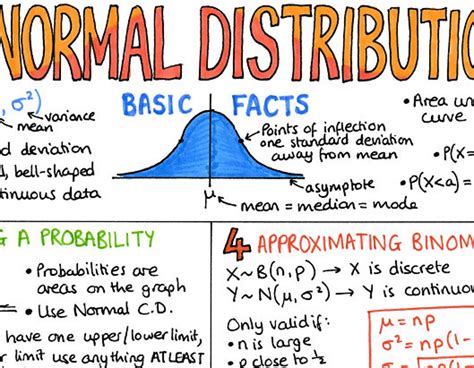 NORMAL DISTRIBUTIO
BASIC FACTS
, σ²)
variance
mean
d deviation
, bell-shaped
tinuous data
Points of inflection
one standard deviation
away from mean
asymptote
μ
mean = median = mode
• Area un
curve
• P(X=
• P(X<a) =
G A PROBABILITY
• Probabilities are
areas on the graph
• Use Normal C.D.
have one upper/lower limit,
r limit use anything ATLEAST
4 APPROXIMATING BINOM
X~B(n,p) → X is discrete
Y~N(μ, σ²) → Y is continuou
Only valid if:
• n is large
• p close to ½
μ = np
σ² = np(1-
σ = √np(1-